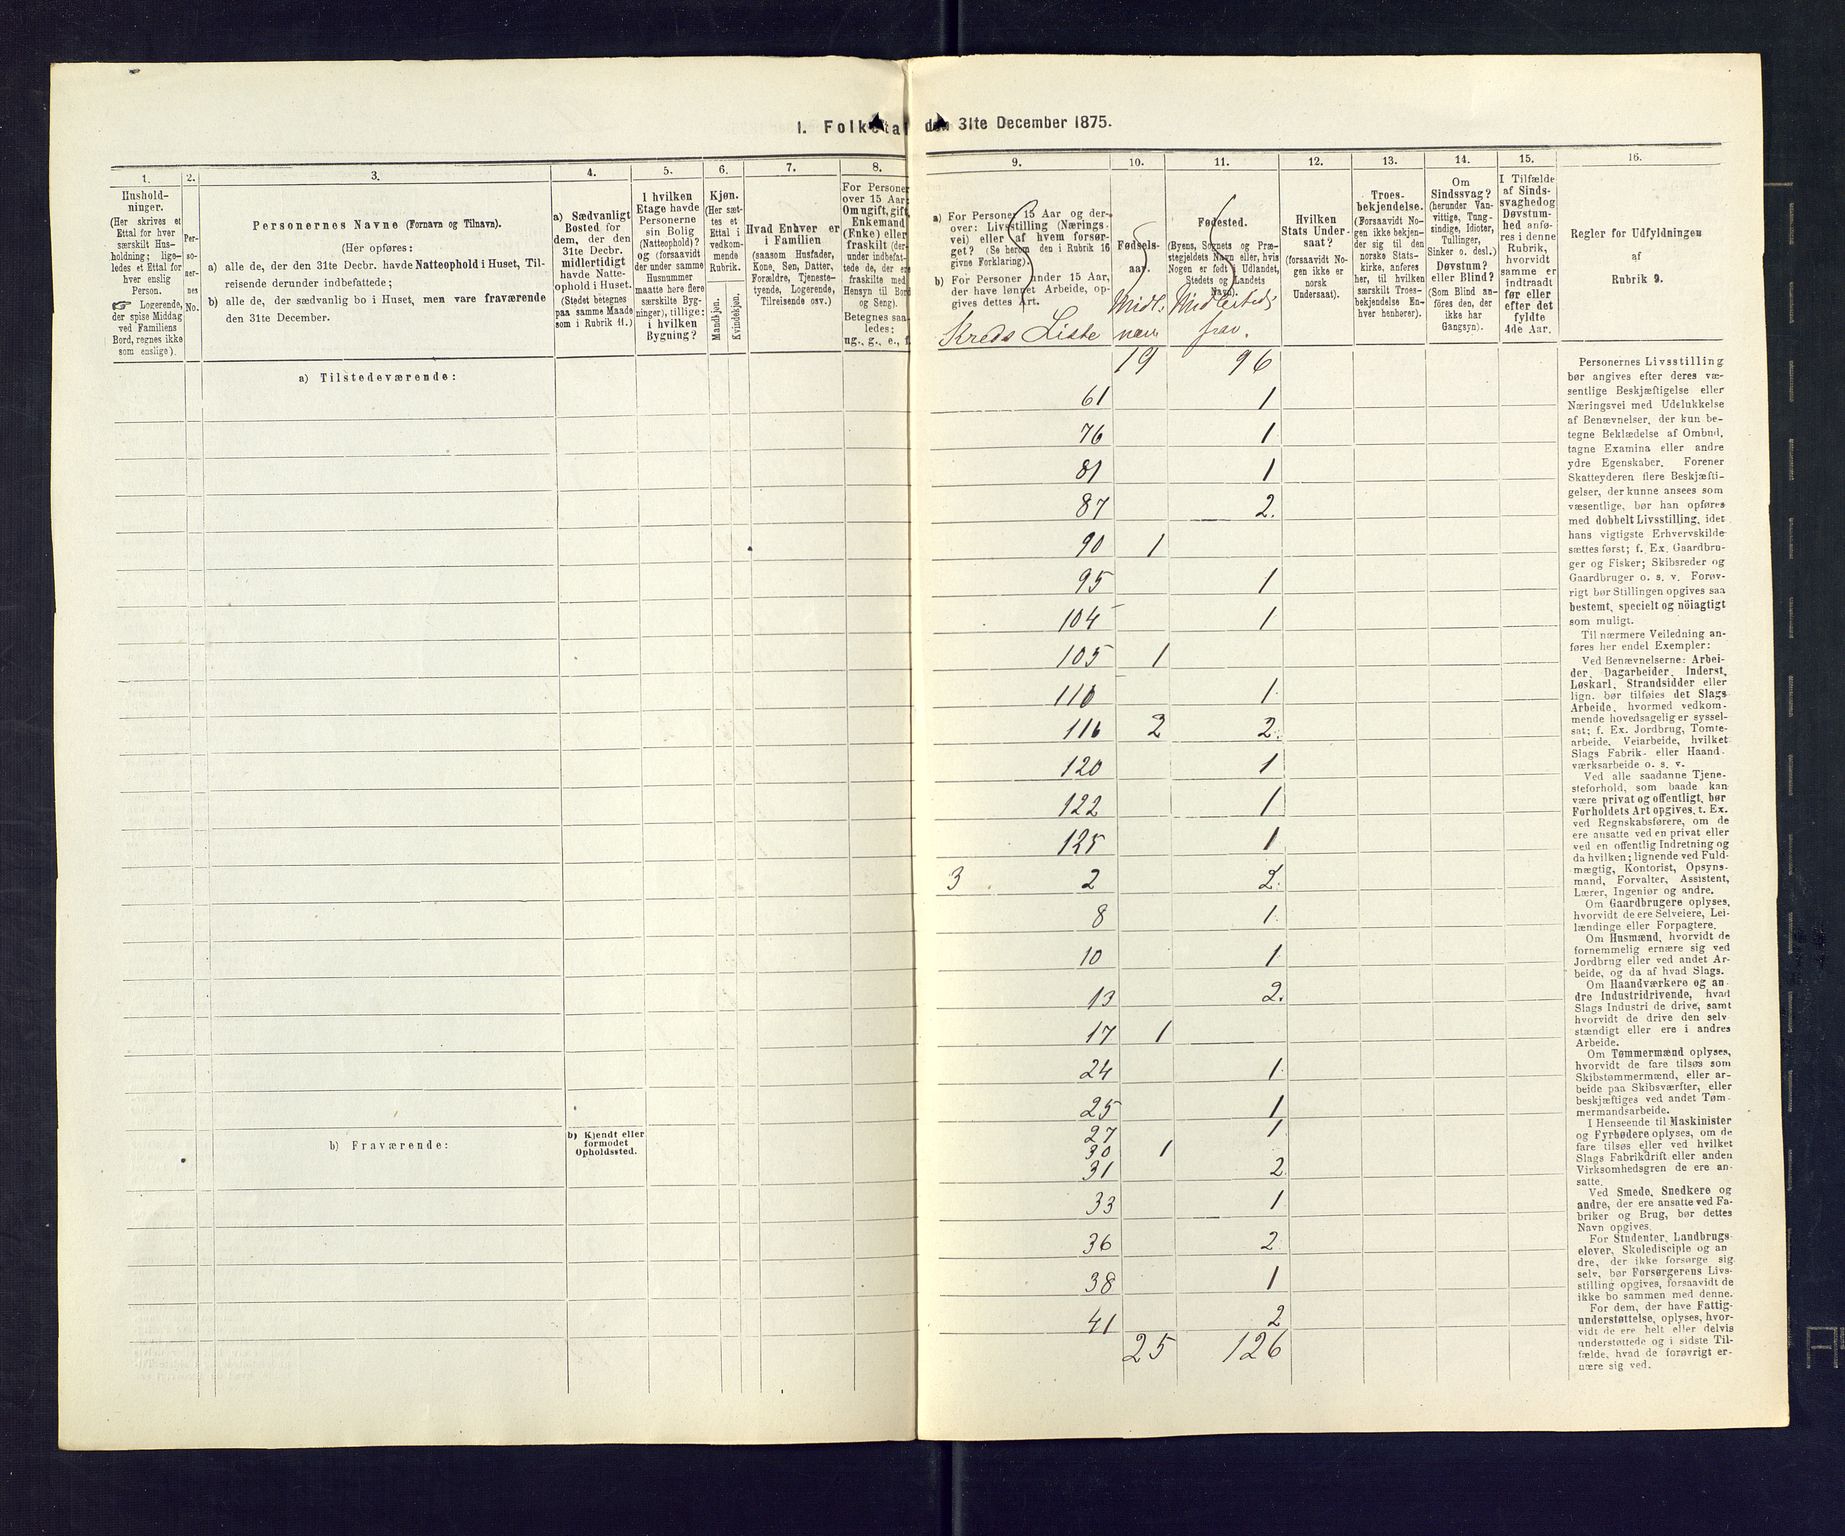 I. Folketal den 31te December 1875.
1.
Hushold-
ninger.
(Her skrives et
Ettal for hver
særskilt Hus-
holdning; lige-
ledes et Ettal for
hver enslig
Person.
☞ Logerende,
der spise Middag
ved Familiens
Bord, regnes ikke
som enslige).
2.
Per-
so-
ner-
nes
No.
3.
Personernes Navne (Fornavn og Tilnavn).
(Her opføres:
a) alle de, der den 31te Decbr. havde Natteophold i Huset, Til-
reisende derunder indbefattede;
b) alle de, der sædvanlig bo i Huset, men vare fraværende
den 31te December.
4.
a) Sædvanligt
Bosted for
dem, der den
31te Decbr.
midlertidigt
havde Natte-
ophold i Huset.
(Stedet betegnes
paa samme Maade
som i Rubrik 11.)
5.
I hvilken
Etage havde
Personerne
sin Bolig
(Natteophold)?
og (forsaavidt
der under samme
Husnummer
maatte høre flere
særskilte Byg-
ninger), tillige:
i hvilken
Bygning?
6.
Kjøn.
(Her sæt-
tes et
Ettal i
vedkom-
mende
Rubrik.
Mandkjøn.
Kvindekjøn.
7.
Hvad Enhver er
i Familien
(saasom Husfader,
Kone, Søn, Datter,
Forældre, Tjeneste-
tyende, Logerende,
Tilreisende osv.)
8.
For Personer
over 15 Aar:
Om ugift, gift,
Enkemand
(Enke) eller
fraskilt (der-
under indbefat-
tede de, der ere
fraskilte med
Hensyn til Bord
og Seng).
Betegnes saa-
ledes:
ug., g., e., f.
9.
a) For Personer 15 Aar og der-
over: Livsstilling (Nærings-
vei) eller af hvem forsør-
get? (Se herom den i Rubrik 16
givne Forklaring).
b) For Personer under 15 Aar,
der have lønnet Arbeide, op-
gives dettes Art.
Kreds Liste
10.
Fødsels-
aar.
Midl.
nær
11.
Fødested.
(Byens, Sognets og Præ-
stegjeldets Navn eller, hvis
Nogen er født i Udlandet,
Stedets og Landets
Navn).
Midlertids
frav.
12.
Hvilken
Stats Under-
saat?
(forsaavidt No-
gen ikke er
norsk
Undersaat).
13.
Troes-
bekjendelse.
(Forsaavidt No-
gen ikke bekjen-
der sig til den
norske Stats-
kirke, anføres
her, til hvilken
særskilt Troes-
bekjendelse En-
hver henhører).
14.
Om
Sindssvag?
(herunder Van-
vittige, Tung-
sindige, Idioter,
Tullinger,
Sinker o. desl.)
Døvstum?
eller Blind?
(Som Blind an-
føres den, der
ikke har
Gangsyn).
15.
I Tilfælde
af Sinds-
svaghed og
Døvstum-
hed anfø-
res i denne
Rubrik,
hvorvidt
samme er
indtraadt
før eller
efter det
fyldte
4de Aar.
16.
Regler for Udfyldningen
af
Rubrik 9.
a) Tilstedeværende:
19 96
61 1
76 1
81 1
87 2.
90 1
95 1
104 1
105 1
110 1
116 2 2.
120 1
122 1
125 1
3 2 2.
8 1
10 1
13 2.
17 1
24 1
25 1
27 1
30 1
31 2
33 1
36 2
38 1
41 2
25 126
b) Fraværende:
b) Kjendt eller
formodet
Opholdssted.
Personernes Livsstilling
bør angives efter deres væ-
sentlige Beskjæftigelse eller
Næringsvei med Udelukkelse
af Benævnelser, der kun be-
tegne Beklædelse af Ombud,
tagne Examina eller andre
ydre Egenskaber. Forener
Skatteyderen flere Beskjæfti-
gelser, der kunne ansees som
væsentlige, bør han opføres
med dobbelt Livsstilling, idet
hans vigtigste Erhvervskilde
sættes først; f. Ex. Gaardbru-
ger og Fisker; Skibsreder og
Gaardbruger o. s. v. Forøv-
rigt bør Stillingen opgives saa
bestemt, specielt og nöiagtigt
som muligt.
Til nærmere Veiledning an-
føres her endel Exempler:
Ved Benævnelserne: Arbei-
der, Dagarbeider, Inderst,
Løskarl, Strandsidder eller
lign. bør tilføies det Slags
Arbeide, hvormed vedkom-
mende hovedsagelig er syssel-
sat; f. Ex. Jordbrug, Tomte-
arbeide, Veiarbeide, hvilket
Slags Fabrik- eller Haand-
værksarbeide o. s. v.
Ved alle saadanne Tjene-
steforhold, som baade kan
være privat og offentligt, bør
Forholdets Art opgives, t. Ex.
ved Regnskabsførere, om de
ere ansatte ved en privat eller
ved en offentlig Indretning og
da hvilken; lignende ved Fuld-
mægtig, Kontorist, Opsyns-
mand, Forvalter, Assistent,
Lærer, Ingeniør og andre.
Om Gaardbrugere oplyses,
hvorvidt de ere Selveiere, Lei-
lændinge eller Forpagtere.
Om Husmænd, hvorvidt de
fornemmelig ernære sig ved
Jordbrug eller ved andet Ar-
beide, og da af hvad Slags.
Om Haandværkere og an-
dre Industridrivende, hvad
Slags Industri de drive, samt
hvorvidt de drive den selv-
stændigt eller ere i andres
Arbeide.
Om Tømmermænd oplyses,
hvorvidt de fare tilsøs som
Skibstømmermænd, eller ar-
beide paa Skibsværfter, eller
beskjæftiges ved andet Tøm-
mermandsarbeide.
I Henseende til Maskinister
og Fyrbødere oplyses, om de
fare tilsøs eller ved hvilket
Slags Fabrikdrift eller anden
Virksomhedsgren de ere an-
satte.
Ved Smede, Snedkere og
andre, der ere ansatte ved Fa-
briker og Brug, bør dettes
Navn opgives.
For Studenter, Landbrugs-
elever, Skoledisciple og an-
dre, der ikke forsørge sig
selv, bør Forsørgerens Livs-
stilling opgives, forsaavidt de
ikke bo sammen med denne.
For dem, der have Fattig-
understøttelse, oplyses, hvor-
vidt de ere helt eller delvis
understøttede og i sidste Til-
fælde, hvad de forøvrigt er-
nære sig ved.